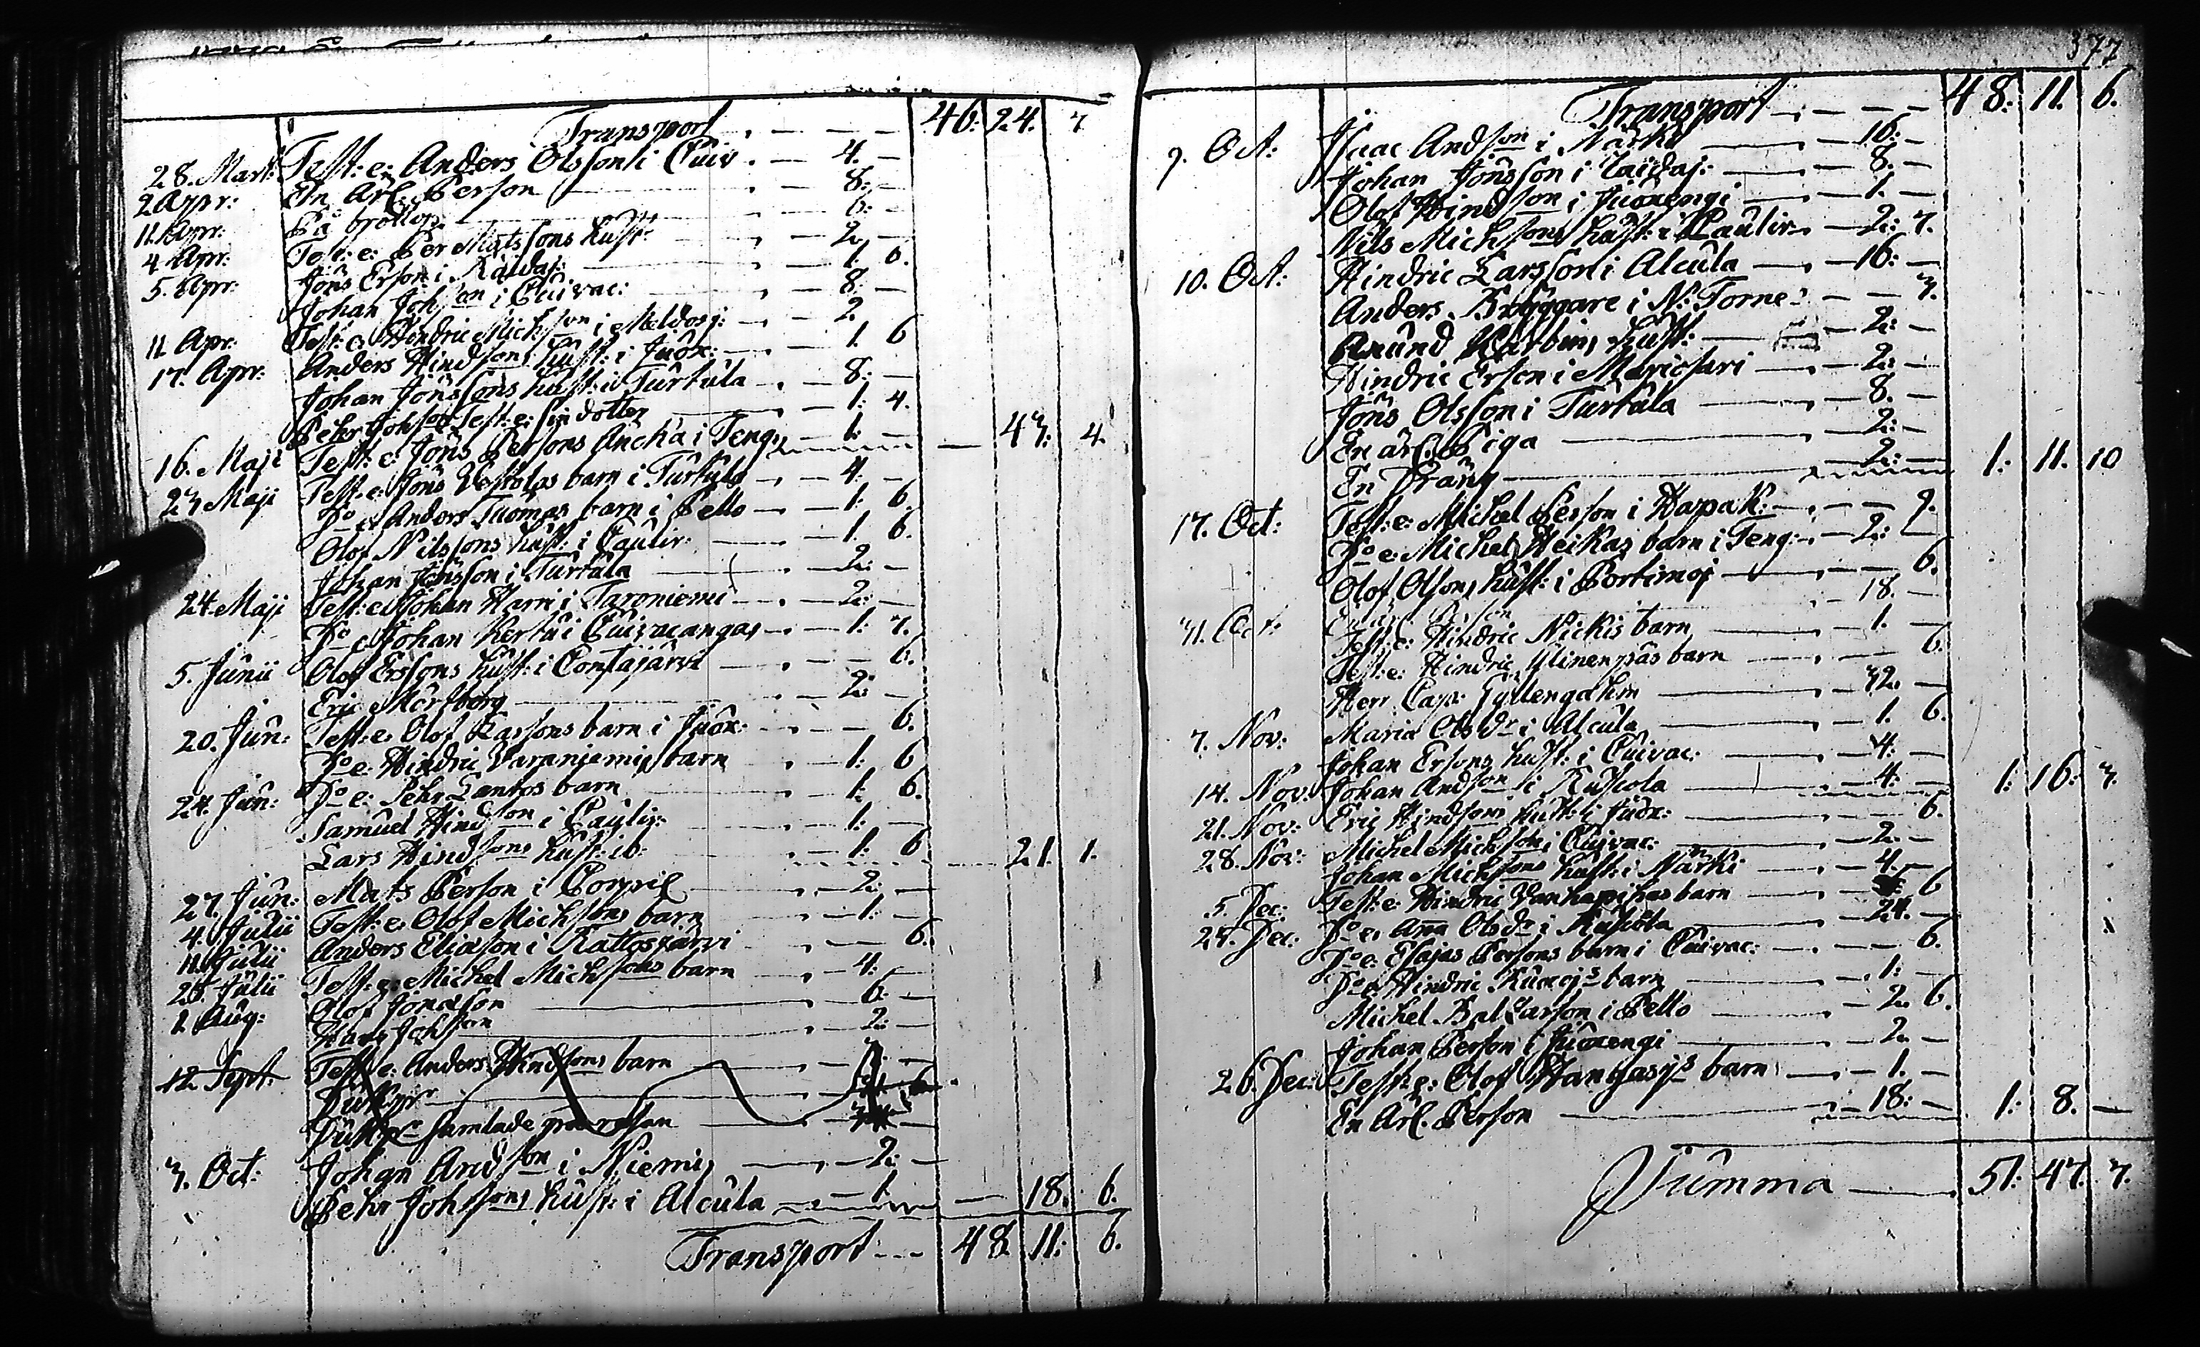 Transport . — — — 46: 24. 7
28. Mart: Test: e: Anders Olsson i Cuiv . — 4. —
2 Apr: En Arl. Person — 8: —
11. Apr: På bröllop — 6: —
4 Apr: Test: e: Per Matssons hust: — 2. —
5. Apr: Jöns Erson i Kaidaj: — 1. 6.
Johan Johson i Cuivac: — 8: —
11. Apr: Test: e: Hindric Michson i Meldosj: — 2.
17. Apr: Anders Hindsons hust: i Juox: — 1. 6
Johan Jönssons hust: i Turtula — 8: —
Pehr Johsons Test: e: sin dotter — 1: 4.
16. Maji Test: e: Jöns Persons Änckia i Teng: — 1: — — 47: 4.
23 Maji Test: e: Jöns Vestolas barn i Turtula — 4: —
Do e: Anders Tuomas barn i Pello — 1: 6.
Olof Nilssons hust: i Paulir: — 1. 6.
Johan Jönsson i Turtula — 2: —
24. Maji Test: e: Johan Harri i Taroniemi — 2: —
Do e: Johan Kertu i Cuivacangas — 1: 7.
5. Junii Olof Erssons hust: i Contajärvi — 6.
Eric Mörtberg — 2: —
20. Jun: Test: e: Olof Larssons barn i Juox: — 6.
Do e: Hindric Varanjemis barn — 1: 6
24. Jun: Do e: Pehr Lantos barn — 1: 6.
Samuel Hindson i Paulir: — 1: —
Lars Hindsons hust: ib: — 1: 6 21. 1.
27. Jun: Mats Person i Corpik — 2: —
4. Julii Test: e: Olof Michsons barn — 1: —
11. Julii Anders Eliason i Rattosjärvi — 6.
25. Julii Test: e: Michel Michsons barn — 4: —
1. Aug: Olof Jonason — 6: —
Hans Johson — 2: —
12. Sept: Test: e: Anders Hindsons barn
samlade på resan
3. Oct: Johan Andson i Niemis — 2: —
Pehr Johsons hust: i Alcula — 1. — 18. 6.
Transport — 48. 11: 6.
377
Transport — — — 48: 11. 6.
9. Oct: Isaac Andson i Närki — 16: —
Johan Jönsson i Kaidaj: — 8: —
Olof Hindson i Juoxengi — 1. —
Nils Michsons hust: i Paulir: — 2: 7.
10. Oct: Hindric Larsson i Alcula — 16: —
Anders Bryggare i N: Torne: — 3.
Amund Karbins hust: — 2: —
Hindric Erson i Maricsari — 2: —
Jöns Olsson i Turtula — 8. —
En ärl: Piga — 2: —
En Dräng — 2: — 1: 11. 10
17. Oct: Test: e: Michel Person i Hapak: — 9.
Do e: Michel Heikas barn i Teng: — 2: —
Olof Olsons hust: i Portimoj — 6.
— 18. —
31. Oct: Test: e: Hindric Nickis barn — 1. —
Test: e: Hindric Ylinenpäs barn — 6.
Herr Cap: Gyllengahm — 32. —
7. Nov: Maria Ols Dr i Alcula — 1. 6.
Johan Ersons hust: i Cuivac: — 4: —
14. Nov: Johan Andson i Ruskola — 4: — 1: 16: 3.
21. Nov: Eric Hindsons hust: i Juox: — 6.
28. Nov: Michel Michson i Cuivac: — 2. —
Johan Michsons hust: i Närki — 4. —
5. Dec: Test: e: Hindric Vanhapihas barn — 6
25. Dec: Do e: Anna Ols dr i Ruskola — 24. —
Do e: Esajas Persons barn i Cuivac: — 6.
Do e: Hindric Kumojs barn — 1: —
Michel Baltzarson i Pello — 2. 6.
Johan Person i Juoxengi — 2. —
26. Dec: Test: e: Olof Hangasys barn — 1. —
En Arl. Person — 18: — 1: 8. —
Summa — 51: 47. 7.